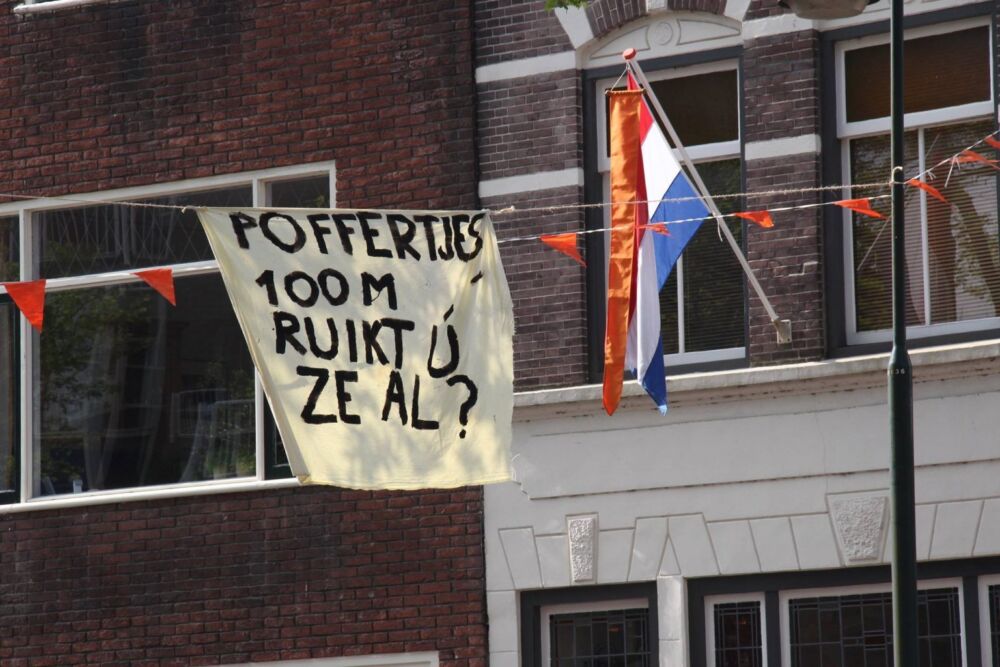 POFFERTJES
100 M
RUIKT Ú
ZE AL?